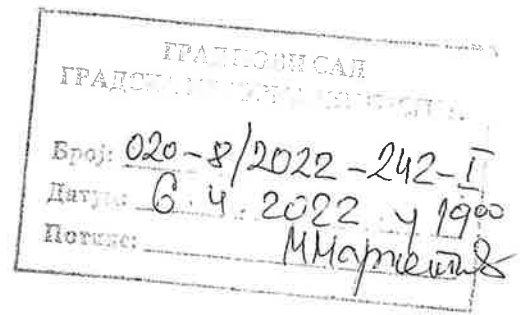 ГРАД НОВИ САД
ГРАДСКА
Број: 020-8/2022-242-I
Датум: 6.4.2022 у 19⁰⁰
Потпис: